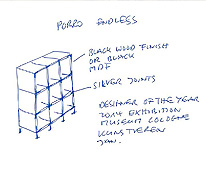 PORRO ENDLESS
BLACK WOOD FINISH
OR BLACK
MDF
SILVER JOINTS
DESIGNER OF THE YEAR
2014 EXHIBITION
MUSEUM COLOGNE
JAN.